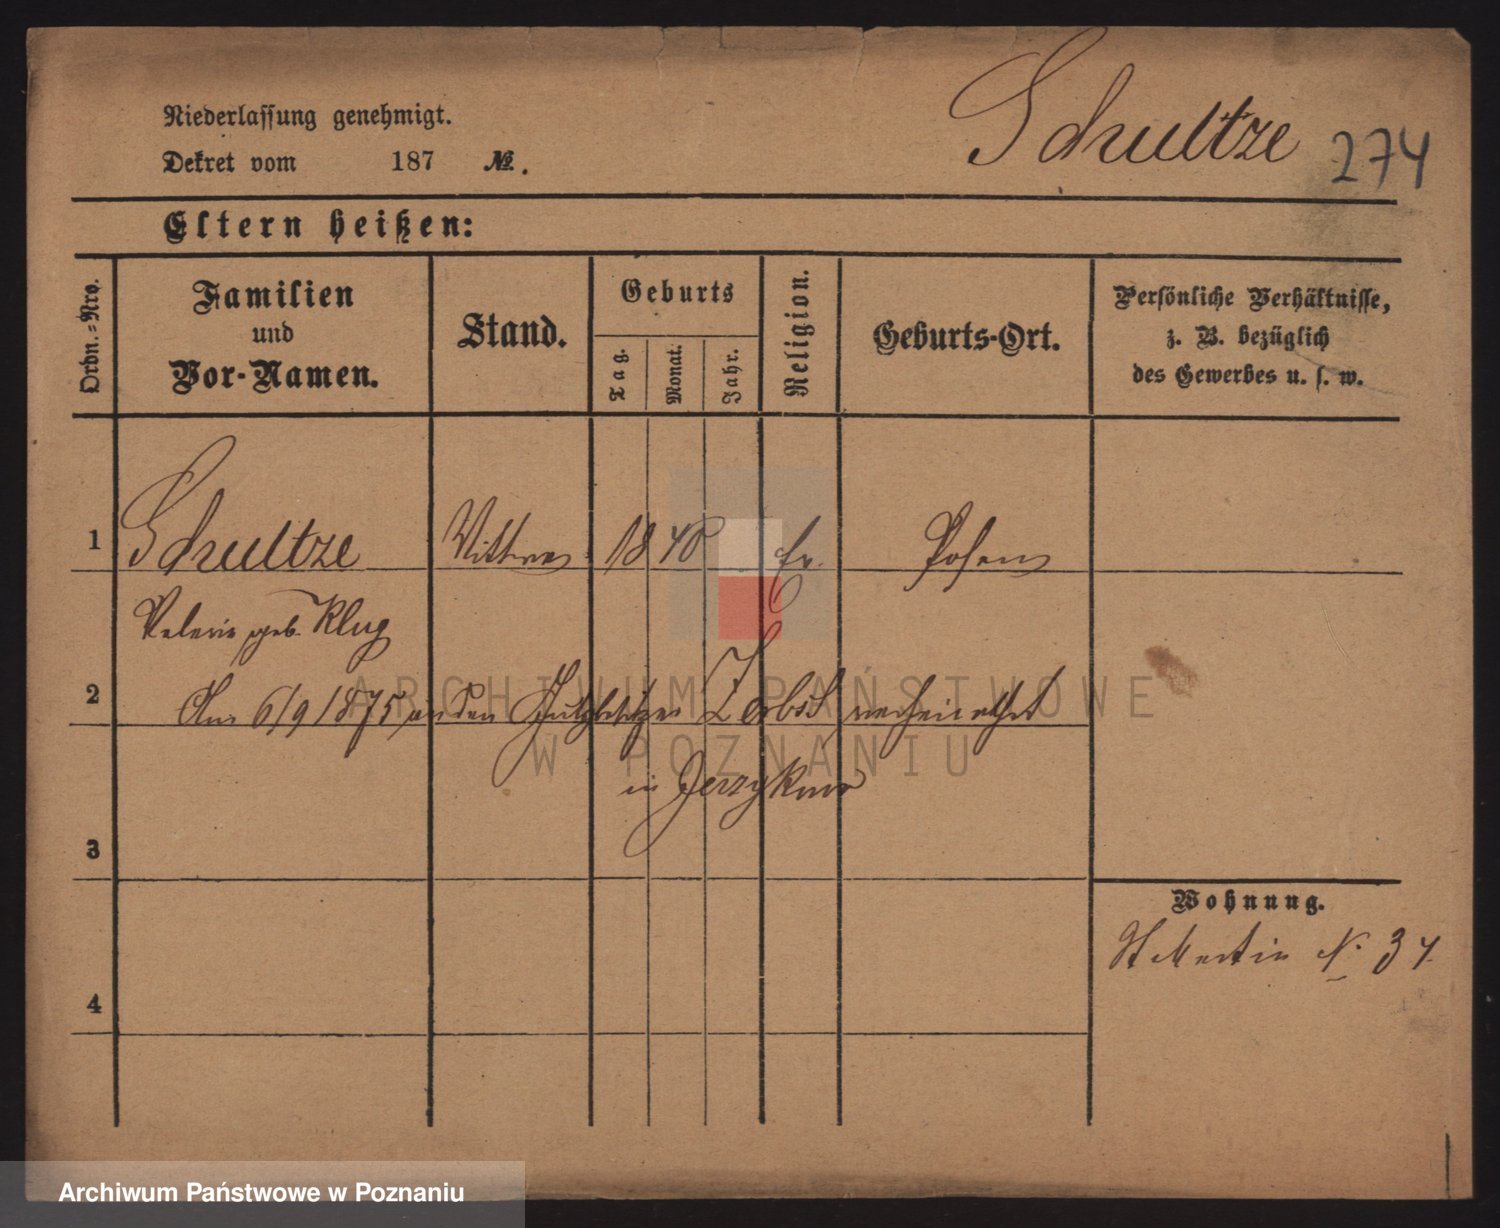 Schultze 274
Niederlassung genehmigt.
Dekret vom 187 №.
Eltern heißen:
Ordn.-Nro.
Familien
und
Vor-Namen.
Stand.
Geburts
Tag.
Monat.
Jahr.
Religion.
Geburts-Ort.
Persönliche Verhältnisse,
z. B. bezüglich
des Gewerbes u. s. w.
1 Schultze Wittwe 1840 ev. Posen
Valerie geb. Klug
2 Am 6/9 1875 an den Gutsbesitzer Zerbst verheirathet
in Jerzykowo
3
Wohnung.
St Martin N. 34
4
ARCHIWUM PAŃSTWOWE
W POZNANIU
Archiwum Państwowe w Poznaniu